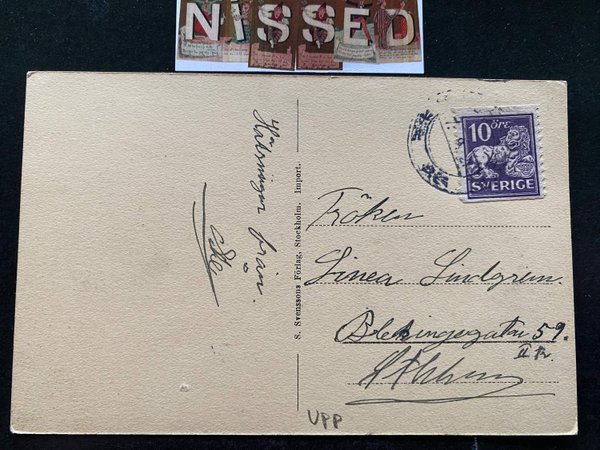 NISSED
10 ÖRE
SVERIGE
Hälsningar från
S. Svenssons Förlag, Stockholm. Import.
Fröken
Linea Lindgren.
Blekingegatan 59.
II tr.
VPP